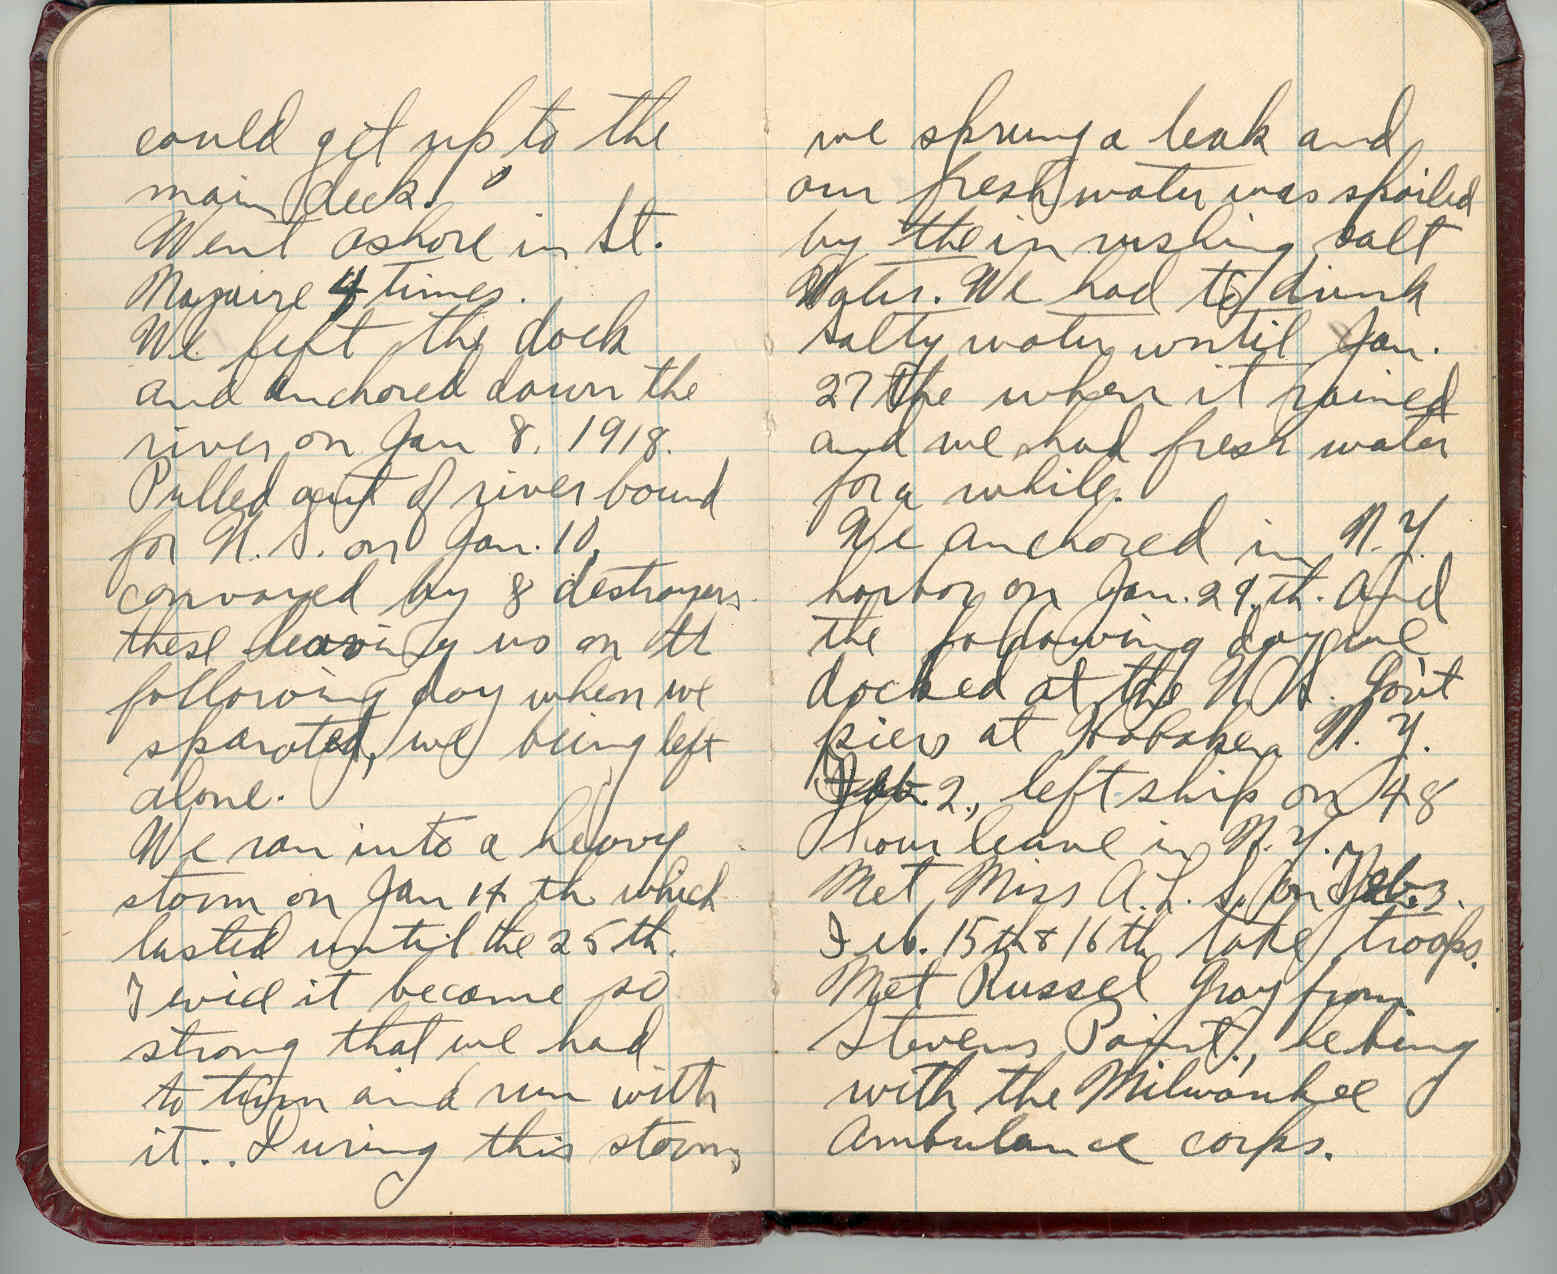 could get up to the
main deck."
Went ashore in St.
Nazaire 4 times.
We left the dock
and anchored down the
river on Jan 8. 1918.
Pulled out of river bound
for U.S. on Jan. 10,
convoyed by 8 destroyers
these leaving us on th
following day when we
sparated, we being left
alone.
We ran into a heavy
storm on Jan 14 th which
lasted until the 25th.
Twice it became so
strong that we had
to turn and run with
it.. During this storm,
we sprung a leak and
our fresh water was spoiled
by the in rushing salt
Water. We had to drink
salty water until Jan.
27 the when it rained
and we had fresh water
for a while.
We anchored in N.Y.
harbor on Jan. 29,th. and
the following day we
docked at the U.S. Gov't
piers at Hoboken N.Y.
Feb. 2., left ship on 48
hour leave in N.Y.
Met Miss A.L.S. on Feb. 3.
Feb. 15th & 16th take troops.
Met Russel Gray from
Stevens Point., he being
with the Milwaukee
Ambulance corps.